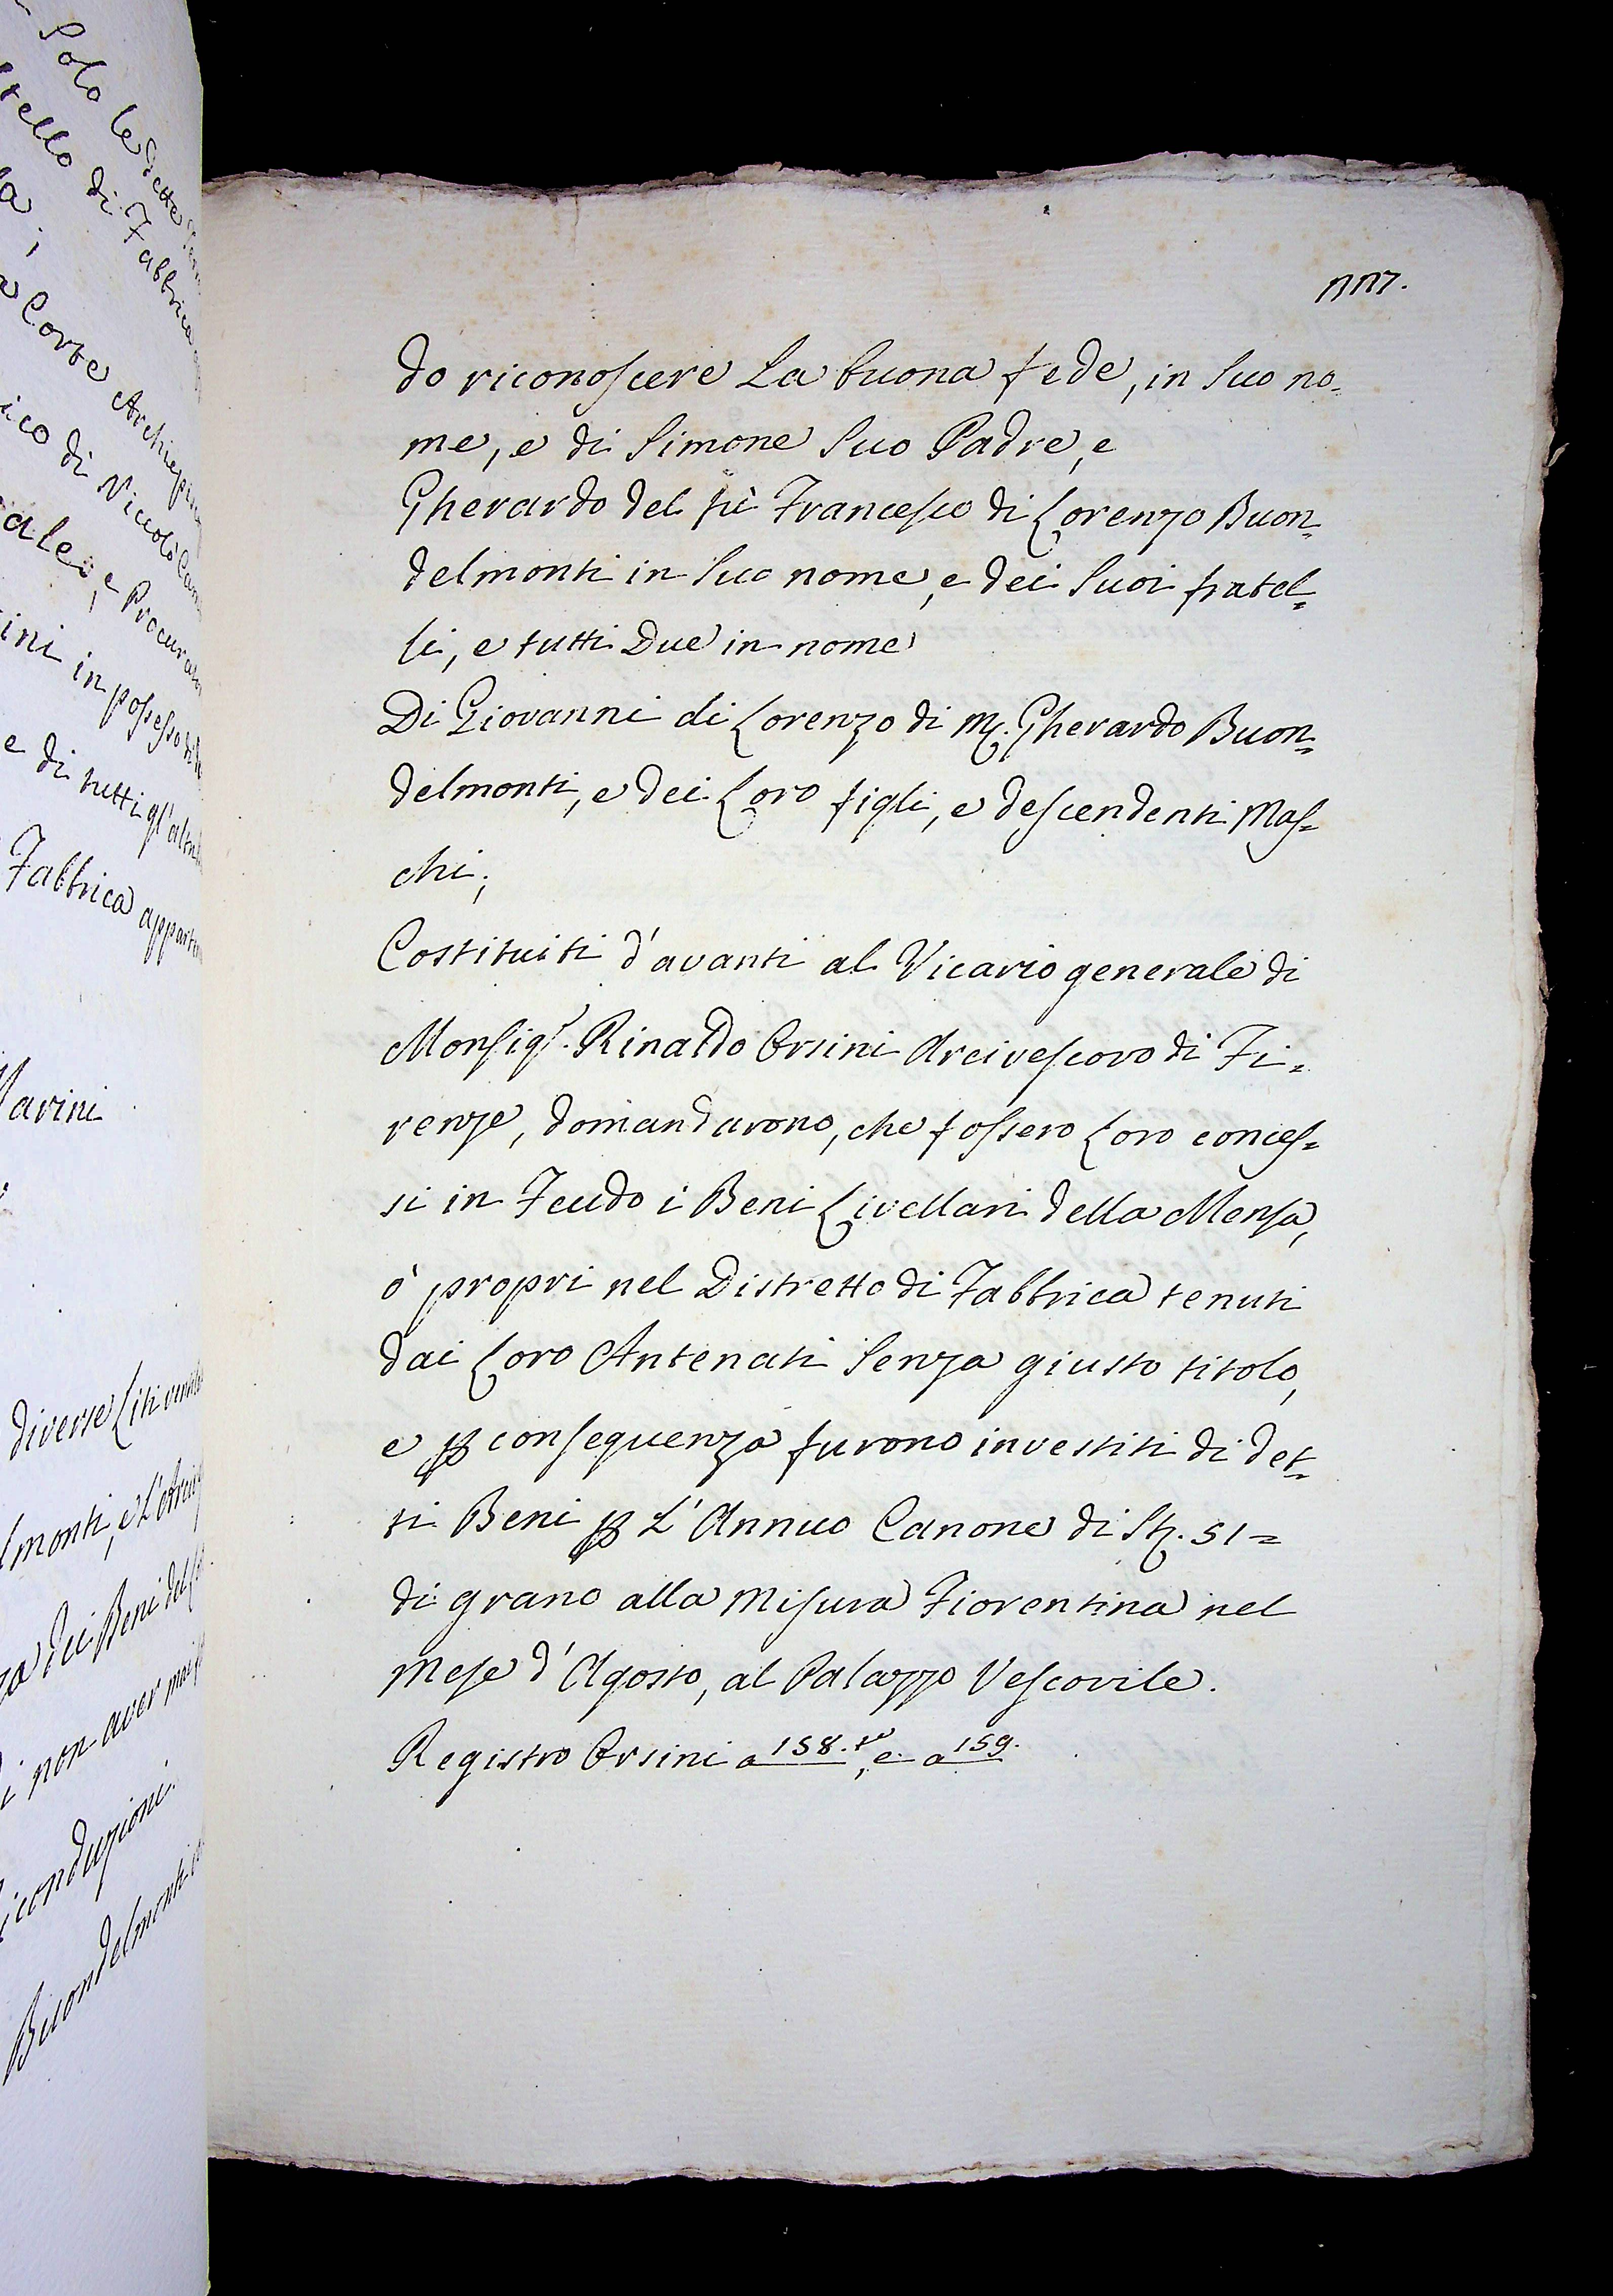 Solo le Sette
tello di Fabbrica
a;
Corte Archiepis
ico di Niccolò
ale, e Procurato
ini in possesso
e di tutti gl'altri
Fabbrica apparten
arini
diverse Liti
lmonti, e L'Arciv
za dei Beni del
i non aver mai
iconduzioni
Buondelmonti
do riconoscere La buona fede, in Suo no=
me, e di Simone Suo Padre, e
Gherardo del fù Francesco di Lorenzo Buon=
delmonti in Suo nome, e dei Suoi fratel=
li, e tutti Due in nome
Di Giovanni di Lorenzo di M. Gherardo Buon=
delmonti, e dei Loro figli, e descendenti Mas=
chi;
Costituiti d'avanti al Vicario generale di
Monsigr. Rinaldo Orsini Arcivescovo di Fi=
renze, domandarono, che fossero Loro conces=
si in Feudo i Beni Livellari della Mensa,
ò propri nel Distretto di Fabbrica tenuti
dai Loro Antenati Senza giusto titolo,
e p conseguenza furono investiti di det=
ti Beni p L'Annuo Canone di St. 51=
di grano alla Misura Fiorentina nel
Mese d'Agosto, al Palazzo Vescovile.
Registro Orsini a 158. to, e a 159.